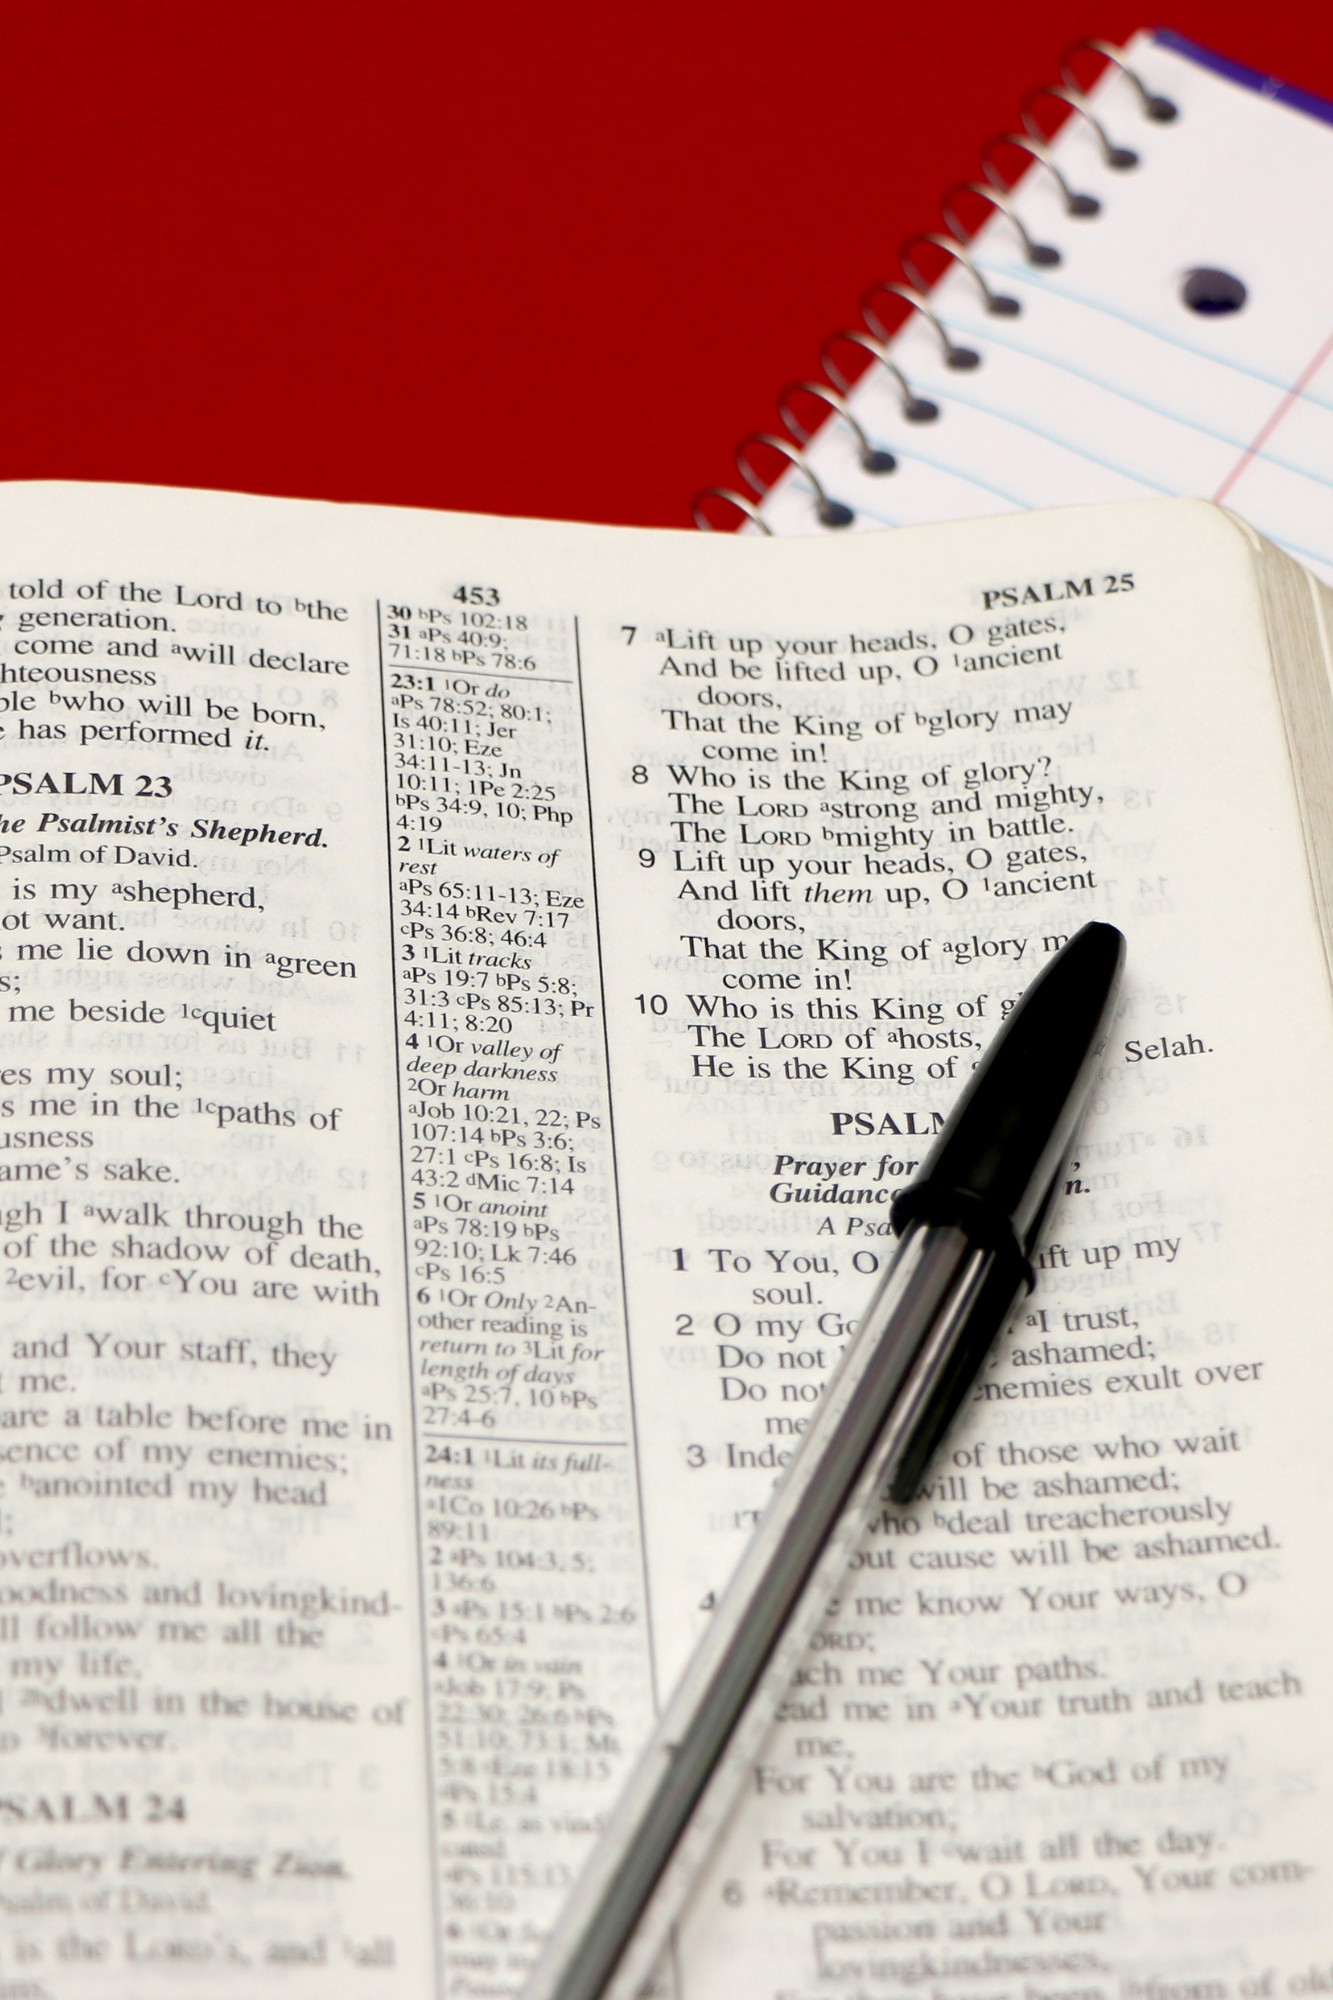 453
PSALM 25
told of the Lord to bthe
generation.
come and awill declare
hteousness
ple bwho will be born,
has performed it.
PSALM 23
he Psalmist's Shepherd.
Psalm of David.
is my ashepherd,
ot want.
me lie down in agreen
s;
me beside 1cquiet
es my soul;
s me in the 1cpaths of
usness
ame's sake.
gh I awalk through the
of the shadow of death,
2evil, for cYou are with
and Your staff, they
t me.
are a table before me in
sence of my enemies;
banointed my head
l;
overflows.
oodness and lovingkind-
ll follow me all the
my life,
dwell in the house of
forever.
PSALM 24
f Glory Entering Zion.
Psalm of David.
is the LORD'S, and 1all
30 bPs 102:18
31 aPs 40:9;
71:18 bPs 78:6
23:1 1Or do
aPs 78:52; 80:1;
Is 40:11; Jer
31:10; Eze
34:11-13; Jn
10:11; 1Pe 2:25
bPs 34:9, 10; Php
4:19
2 1Lit waters of
rest
aPs 65:11-13; Eze
34:14 bRev 7:17
cPs 36:8; 46:4
3 1Lit tracks
aPs 19:7 bPs 5:8;
31:3 cPs 85:13; Pr
4:11; 8:20
4 1Or valley of
deep darkness
2Or harm
aJob 10:21, 22; Ps
107:14 bPs 3:6;
27:1 cPs 16:8; Is
43:2 dMic 7:14
5 1Or anoint
aPs 78:19 bPs
92:10; Lk 7:46
cPs 16:5
6 1Or Only 2An-
other reading is
return to 3Lit for
length of days
aPs 25:7, 10 bPs
27:4-6
24:1 1Lit its full-
ness
a1Co 10:26 bPs
89:11
2 aPs 104:3, 5;
136:6
3 aPs 15:1 bPs 2:6
cPs 65:4
4 1Or in vain
aJob 17:9; Ps
22:30; 26:6 bPs
51:10; 73:1; Mt
5:8 cEze 18:15
dPs 15:4
7 aLift up your heads, O gates,
And be lifted up, O 1ancient
doors,
That the King of bglory may
come in!
8 Who is the King of glory?
The LORD astrong and mighty,
The LORD bmighty in battle.
9 Lift up your heads, O gates,
And lift them up, O 1ancient
doors,
That the King of aglory m
come in!
10 Who is this King of g
The LORD of ahosts,
He is the King of Selah.
PSALM
Prayer for ,
Guidance n.
A Psa
1 To You, O ift up my
soul.
2 O my Go aI trust,
Do not ashamed;
Do not enemies exult over
me
3 Inde of those who wait
will be ashamed;
who bdeal treacherously
out cause will be ashamed.
4 me know Your ways, O
ORD;
ach me Your paths.
ead me in aYour truth and teach
me,
For You are the bGod of my
salvation;
For You I cwait all the day.
6 aRemember, O LORD, Your com-
passion and Your
lovingkindnesses,